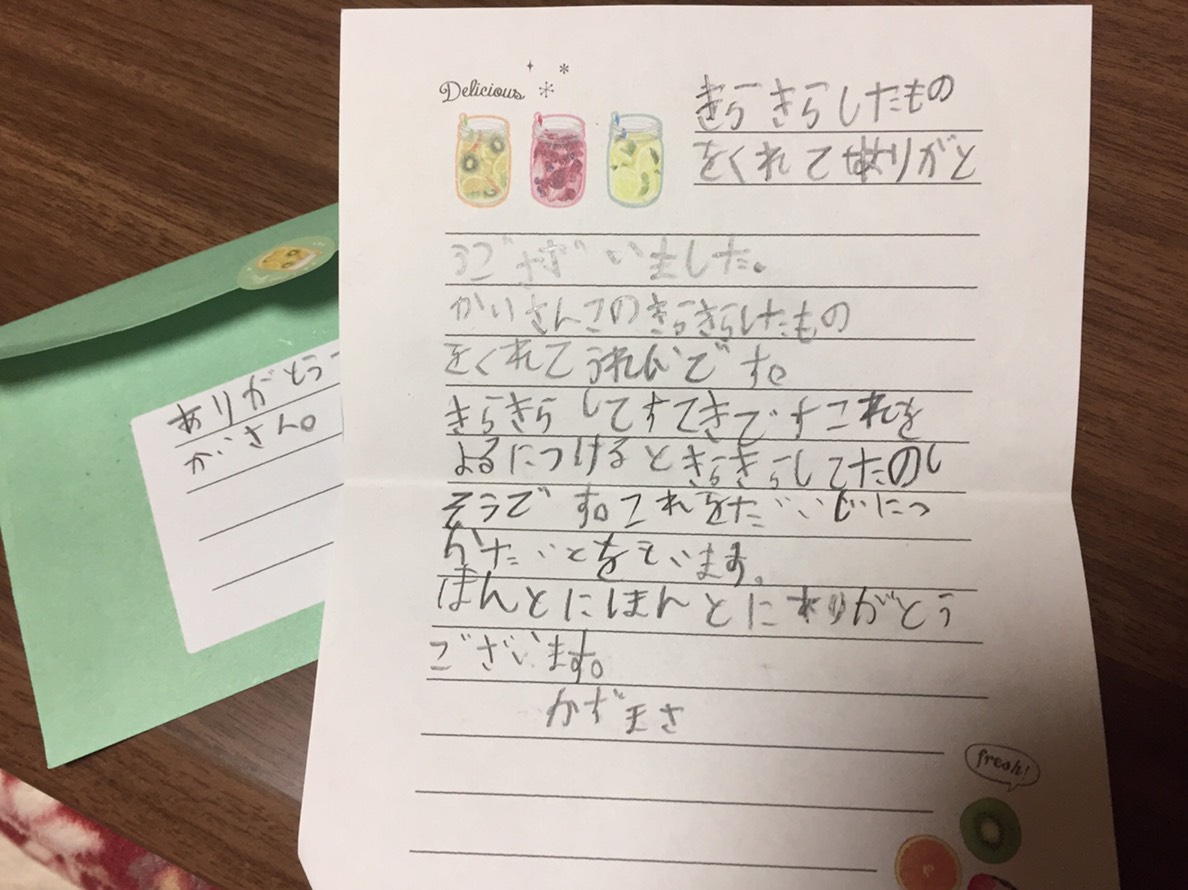 Delicious
きらきらしたもの
をくれてありがと
うございました。
かいさんこのきらきらしたもの
をくれてうれしいです。
きらきらしてすてきですこれを
よるにつけるときらきらしてたのし
そうです。これをだいじにつ
かたいとをています。
ほんとにほんとにありがとう
ございます。
かずまさ
fresh!
ありがとう
かさん。